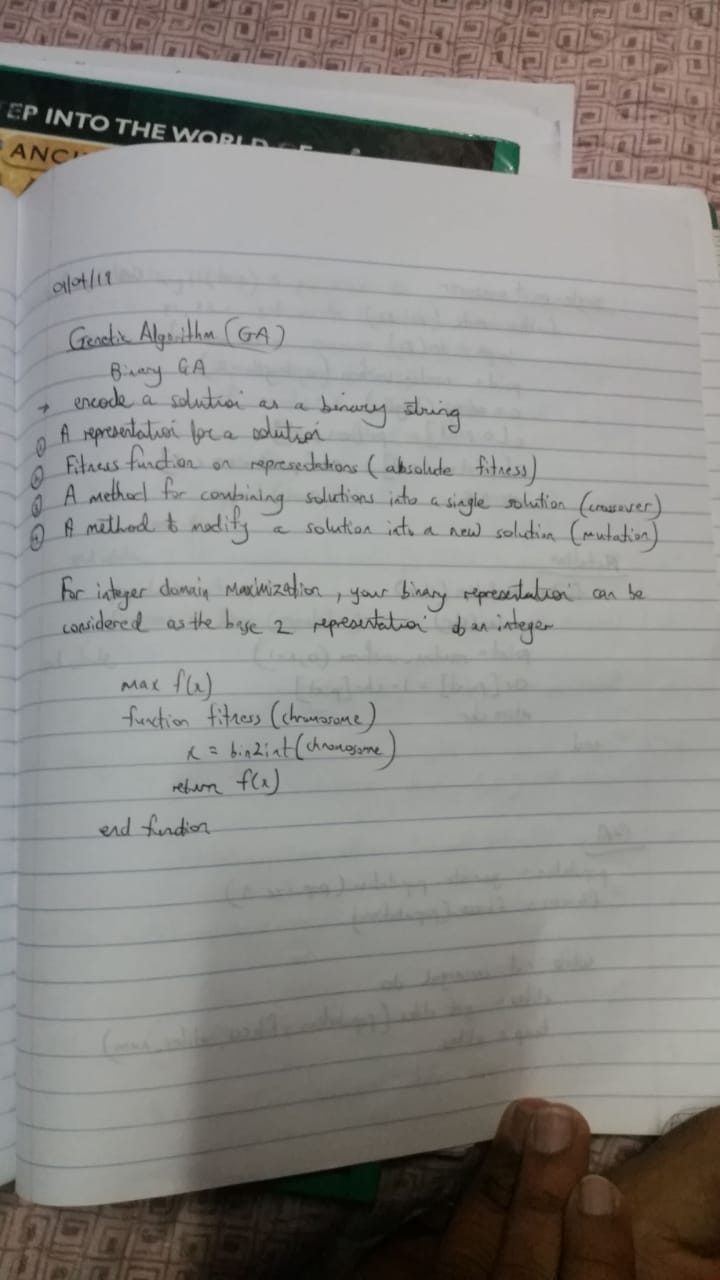 EP INTO THE WORLD OF
ANCI
01/04/19
Genetic Algorithm (GA)
Binary GA
→ encode a solution as a binary string
① A representation for a solution
② Fitness function on representations (absolute fitness)
③ A method for combining solutions into a single solution (crossover)
④ A method to modify a solution into a new solution (mutation)
For integer domain maximization, your binary representation can be
considered as the base 2 representation of an integer
max f(x)
function fitness (chromosome)
x = bin2int(chromosome)
return f(x)
end function